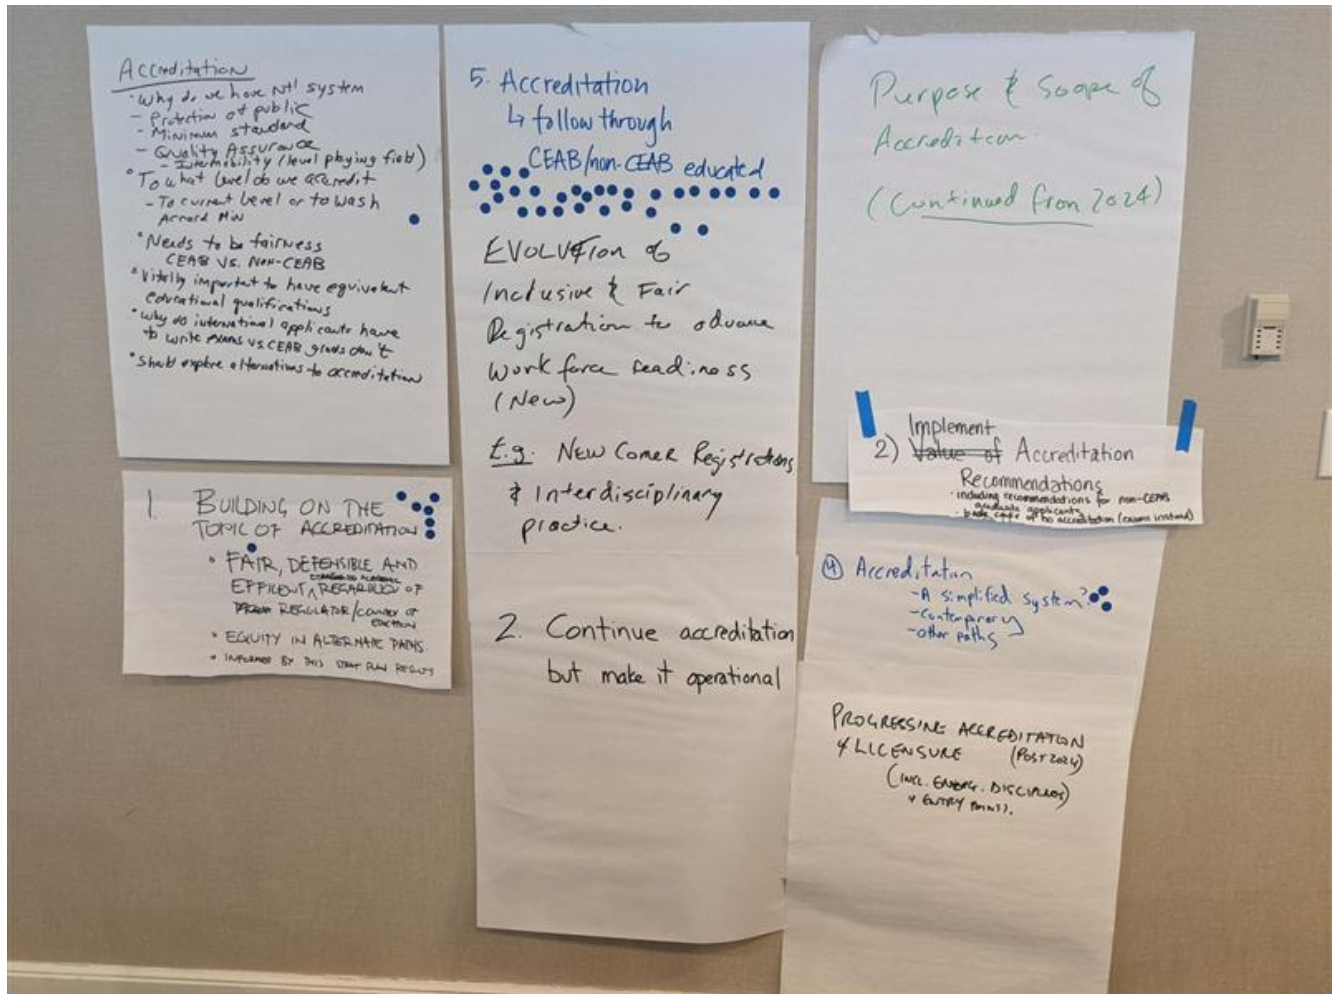 Accreditation
• Why do we have Nt'l system
- Protection of public
- Minimum standard
- Quality Assurance
- Intermobility (level playing field)
• To what level do we accredit
- To current level or to Wash
Accord Min
• Needs to be fairness
CEAB vs. Non-CEAB
• Vitally important to have equivalent
educational qualifications
• Why do international applicants have
to write exams vs. CEAB grads don't
• Should explore alternatives to accreditation
1. BUILDING ON THE
TOPIC OF ACCREDITATION
• FAIR, DEFENSIBLE AND
EFFICIENT, REGARDLESS OF
REGULATOR/COUNTRY OF
• EQUITY IN ALTERNATE PATHS
• INFORMED BY THIS STRAT PLAN RESULTS
5. Accreditation
↳ follow through
CEAB/non-CEAB educated
EVOLUTION of
Inclusive & Fair
Registration to advance
Workforce readiness
(New)
E.g. New Comer Registrations
& Interdisciplinary
practice.
2. Continue accreditation
but make it operational
Purpose & Scope of
Accreditation
(Continued from 2024)
Implement
2) Value of Accreditation
Recommendations
• including recommendations for non-CEAB
graduate applicants
- case of no accreditation (exams instead)
④ Accreditation
- A simplified system?
- Contemporary
- other paths
PROGRESSING ACCREDITATION
& LICENSURE (POST 2024)
(INCL. EMERG. DISCIPLINES)
& ENTRY POINTS).